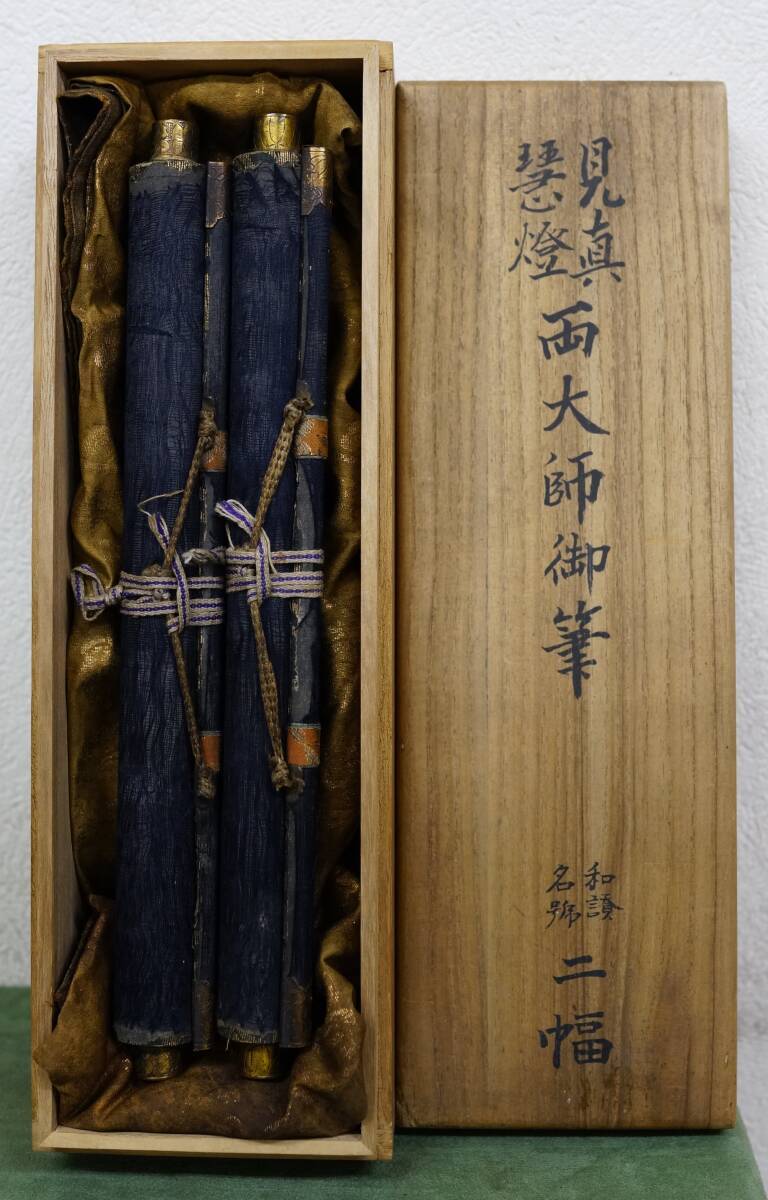 見真
慧燈
両大師御筆
和讃
名號
二幅